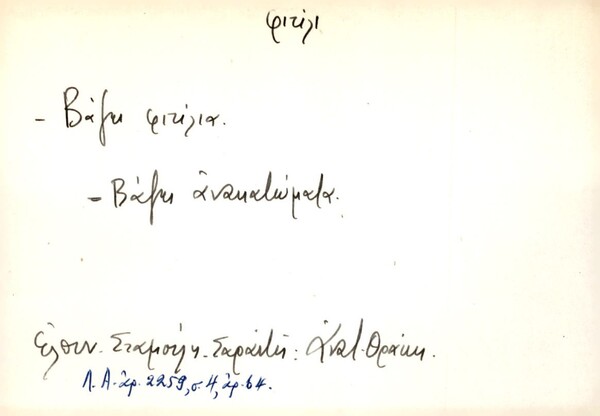 φιτίλι
- Βάζει φιτίλια.
- Βάζει ἀνακατώματα.
Ἐλπιν. Σταμούλη-Σαραντῆ: Ἀνατ. Θράκη.
Λ. Α. ἀρ. 2259, σ. 4, ἀρ. 64.